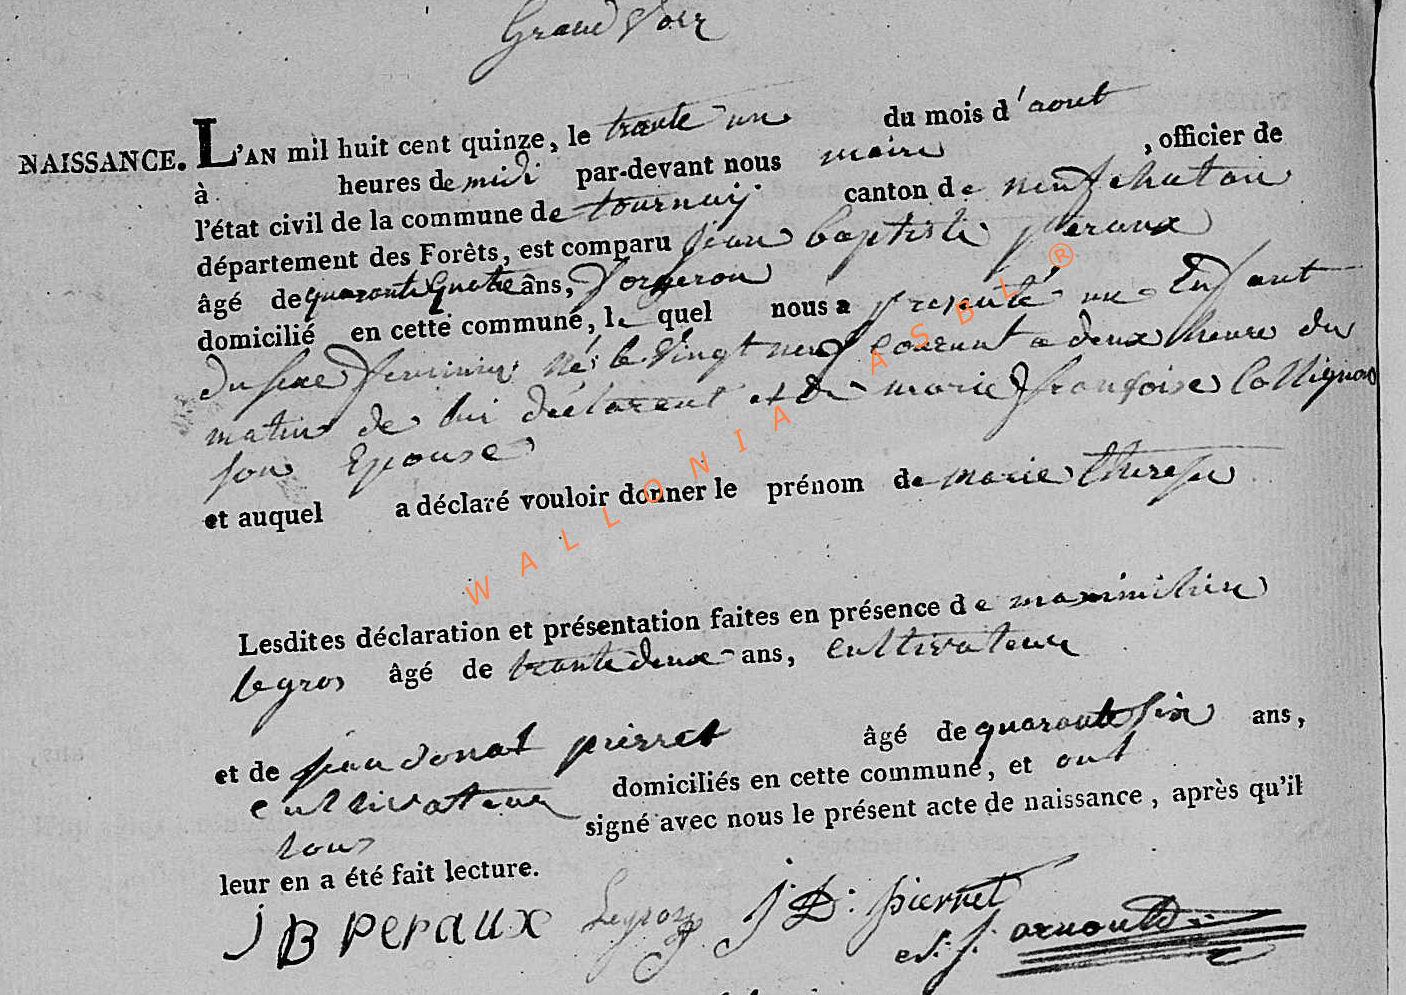 Grand Voir
NAISSANCE. L'AN mil huit cent quinze, le trante un du mois d'aout
à heures de midi par-devant nous maire , officier de
l'état civil de la commune de tournay canton de neufchatau
département des Forêts, est comparu jean baptiste peraux
âgé de quarante quatre ans, forgeron
domicilié en cette commune, le quel nous a presenté une Enfant
du sexe feminin né le vingt neuf courant a deux heure du
matin de lui déclarent et de marie françoise Collignon
son Epouse
et auquel a déclaré vouloir donner le prénom de marie therese
Lesdites déclaration et présentation faites en présence de maximilien
legros âgé de trante deux ans, cultivateur
et de jean donat pierret âgé de quarante six ans,
cultivateur domiciliés en cette commune, et ont
tous signé avec nous le présent acte de naissance, après qu'il
leur en a été fait lecture.
J B PERAUX Legros J: D: pierret
arnould
WALLONIA ASBL ®